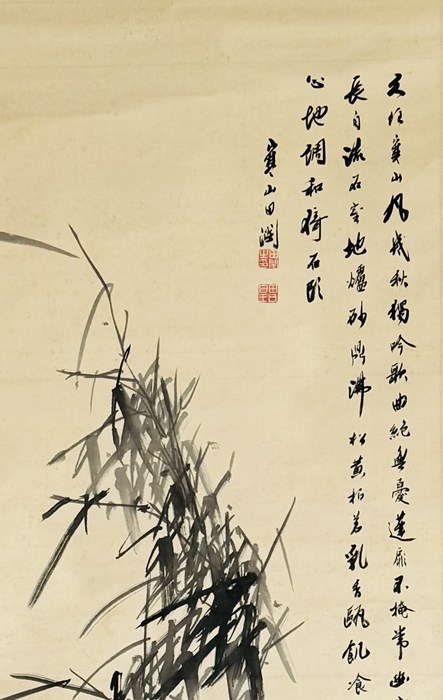 久住寒山凡幾秋獨吟歌曲絶無憂蓬扉不掩常幽
長自流石室地爐砂鼎沸松黄柏茗乳香甌飢飡
心地調和倚石頭
寒山田